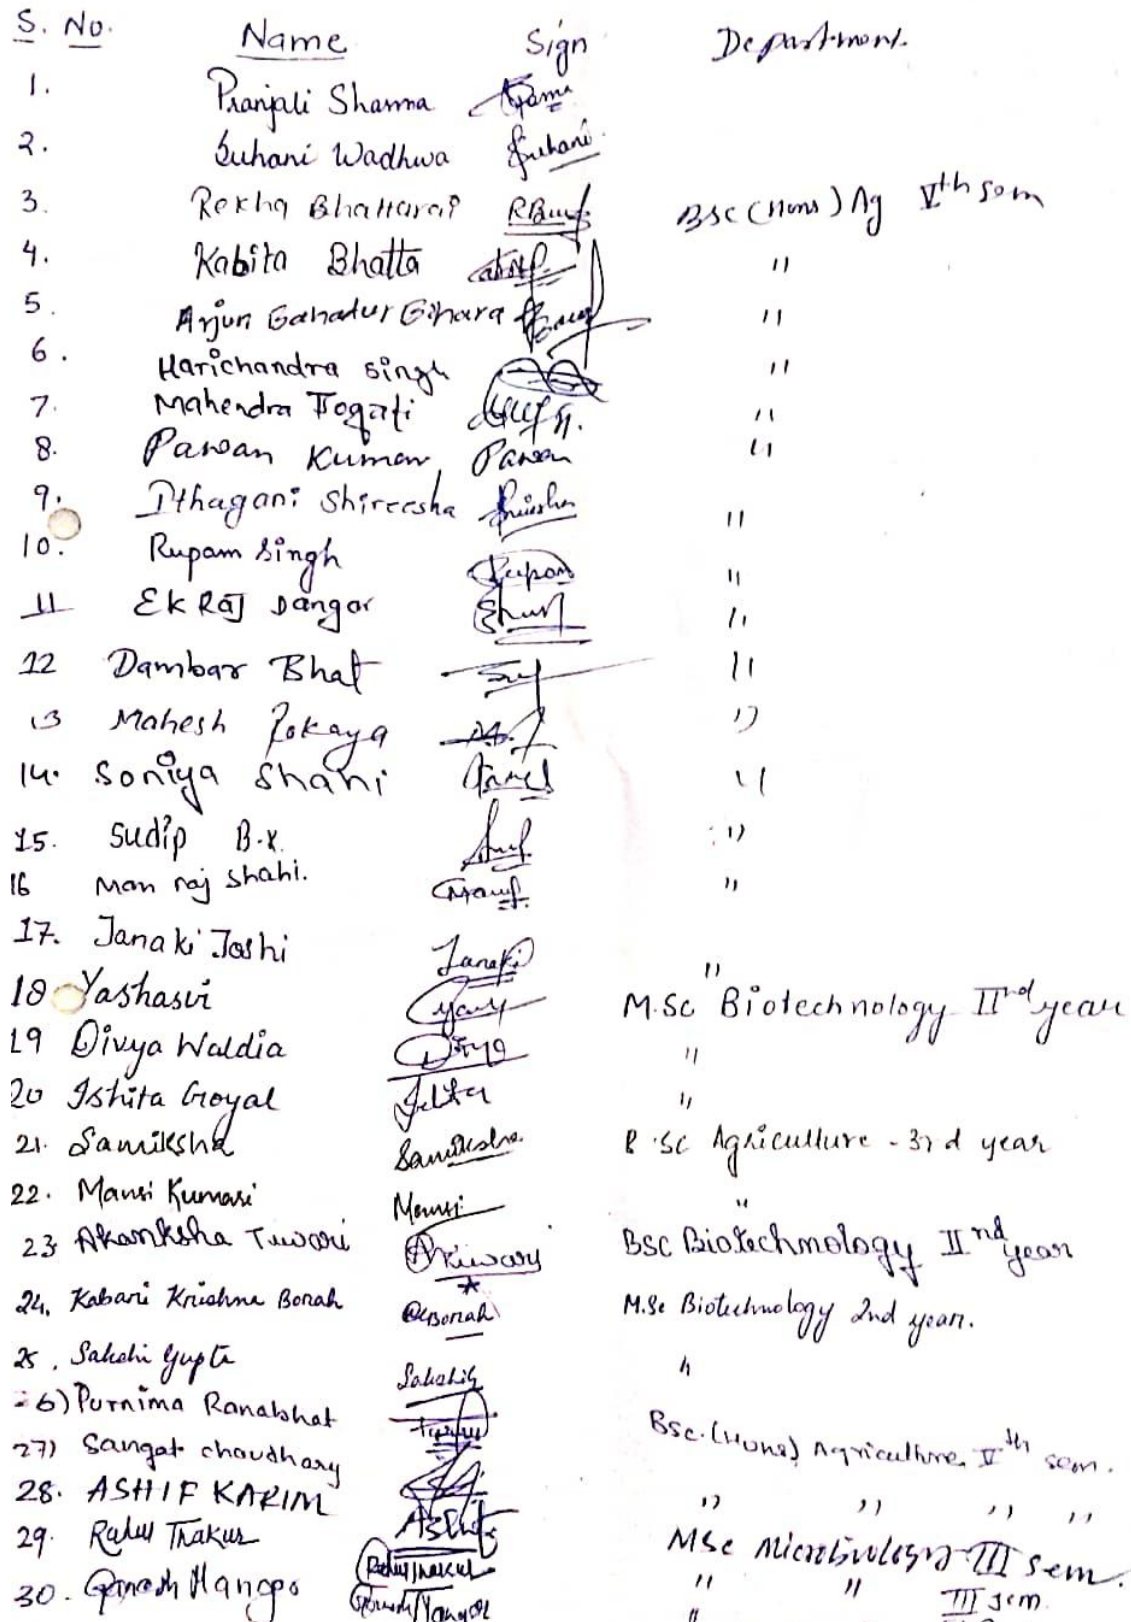 S. No. Name Sign Department.
1. Pranjali Sharma
2. Suhani Wadhwa Suhani
3. Rekha Bhattarai BSc (Hons) Ag Vth sem
4. Kabita Bhatta "
5. Arjun "
6. Harichandra singh "
7. Mahendra Jogati "
8. Pawan Kumar Pawan "
9. Ithagani Shireesha "
10. Rupam Singh Rupam "
11 Ek Raj Dangar "
12 Dambar Bhat "
13 Mahesh Rokaya "
14. Soniya Shahi "
15. Sudip B.K. "
16 Man raj Shahi. "
17. Janaki Joshi Janaki "
18 Yashasvi M.Sc Biotechnology IInd year
19 Divya Waldia Divya "
20 Ishita Goyal Ishita "
21. Samiksha Samiksha B.SC Agriculture - 3rd year
22. Mansi Kumari Mansi "
23 Akanksha Tiwari ATiwary BSC Biotechnology IInd year
24. Kabari Krishna Borah KBorah M.Sc Biotechnology 2nd year.
25. Sakshi Gupta SakshiG "
26) Purnima Ranabhat
27) Sangat chaudhary Bsc. (Hons) Agriculture Vth sem.
28. ASHIF KARIM Ashif " " " "
29. Rahul Thakur Rahul Thakur MSc Microbiology III sem.
30. Ganesh " " III sem.